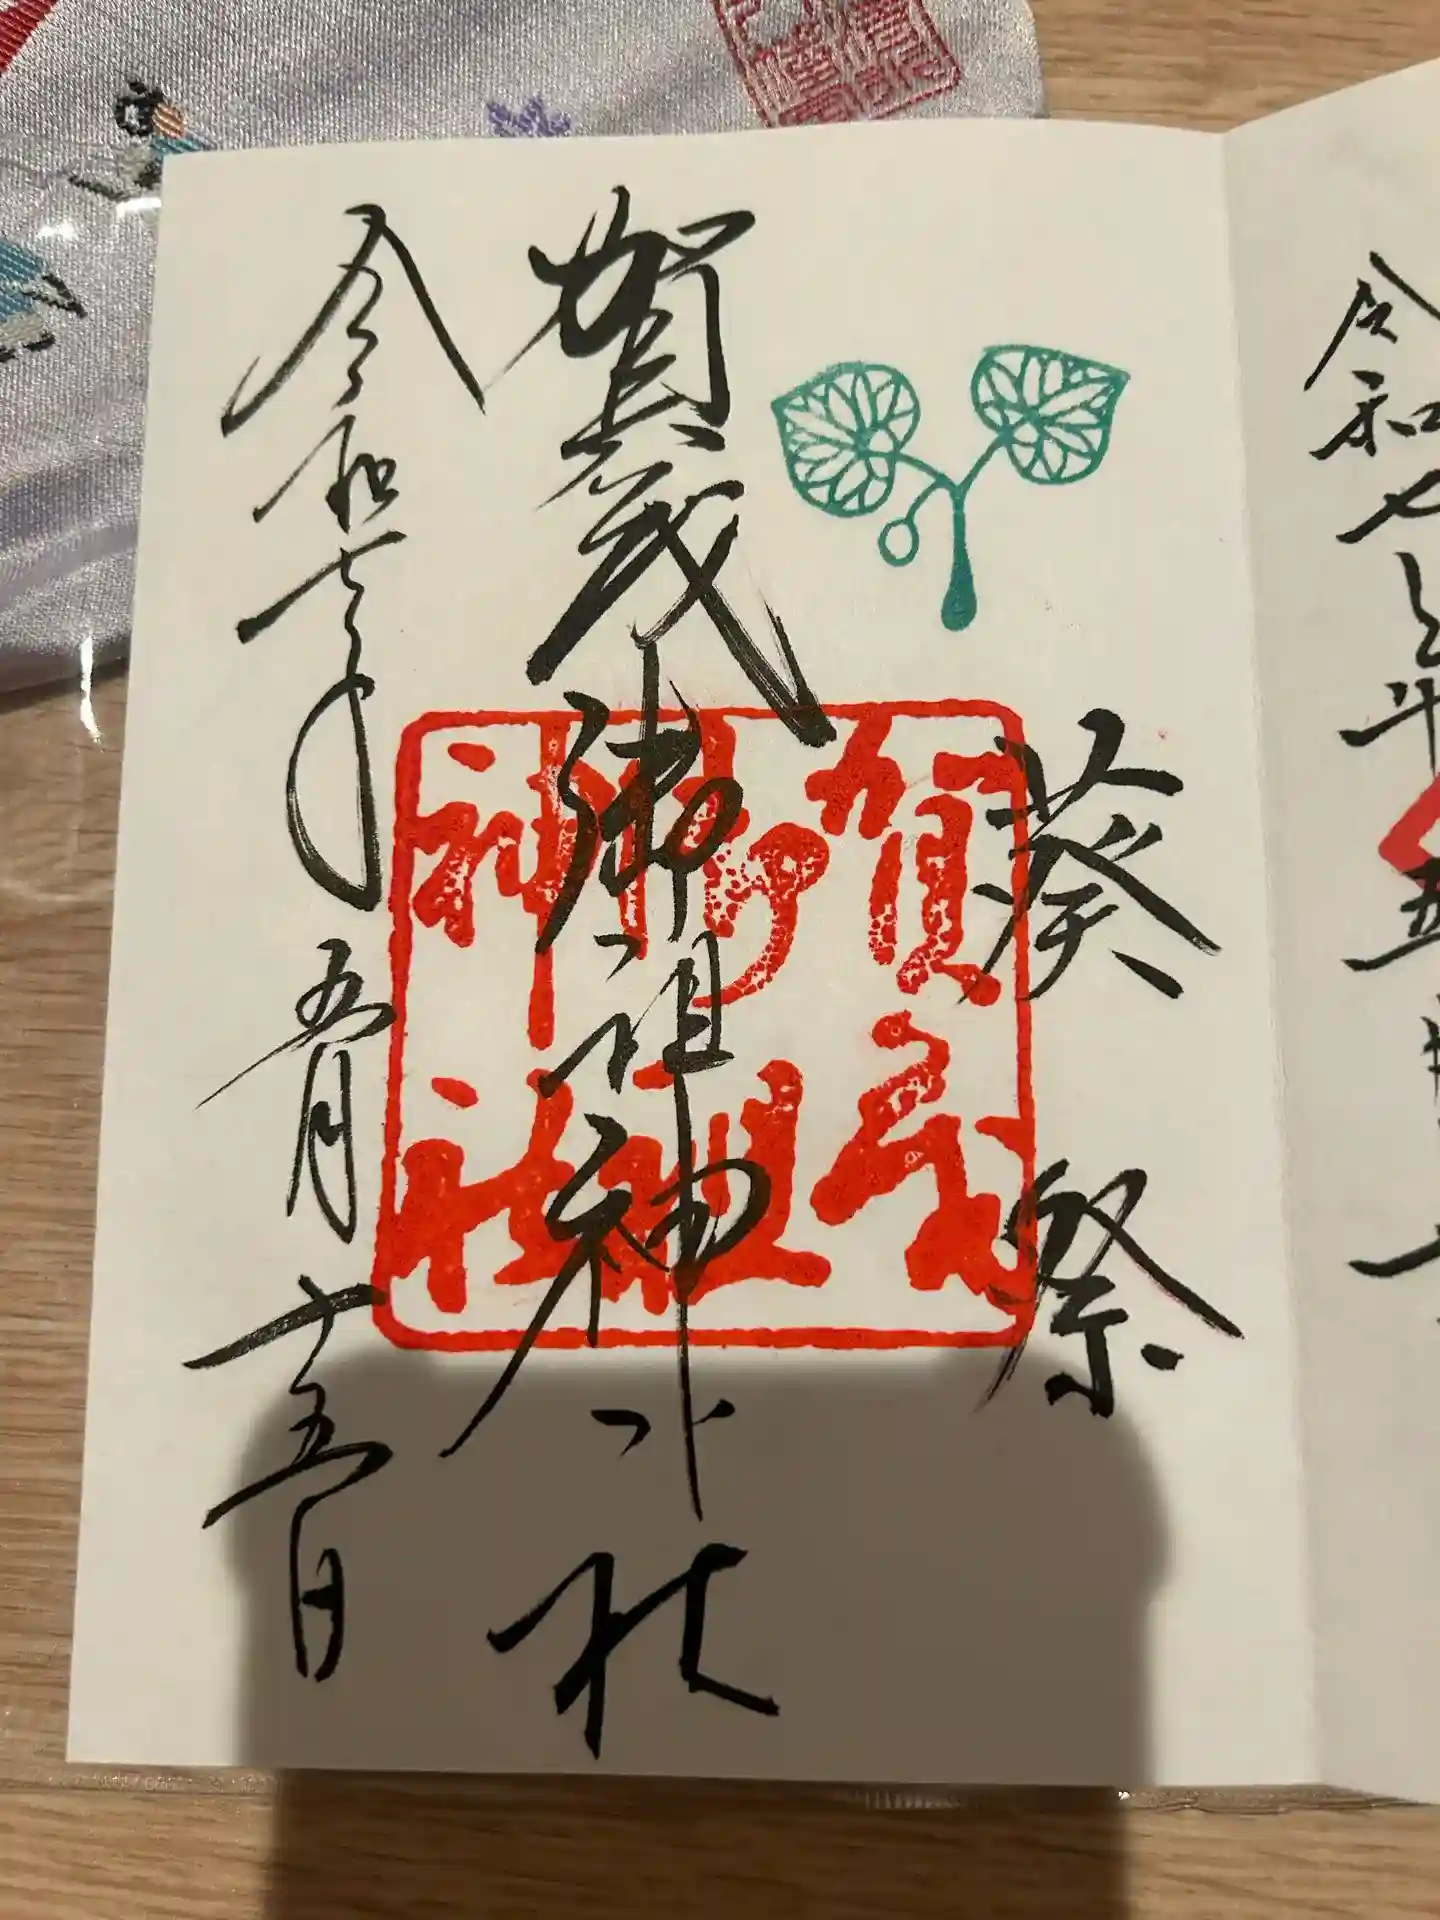 葵祭
賀茂御祖神社
令和七年五月十五日
賀茂
御祖
神社
令和七年五